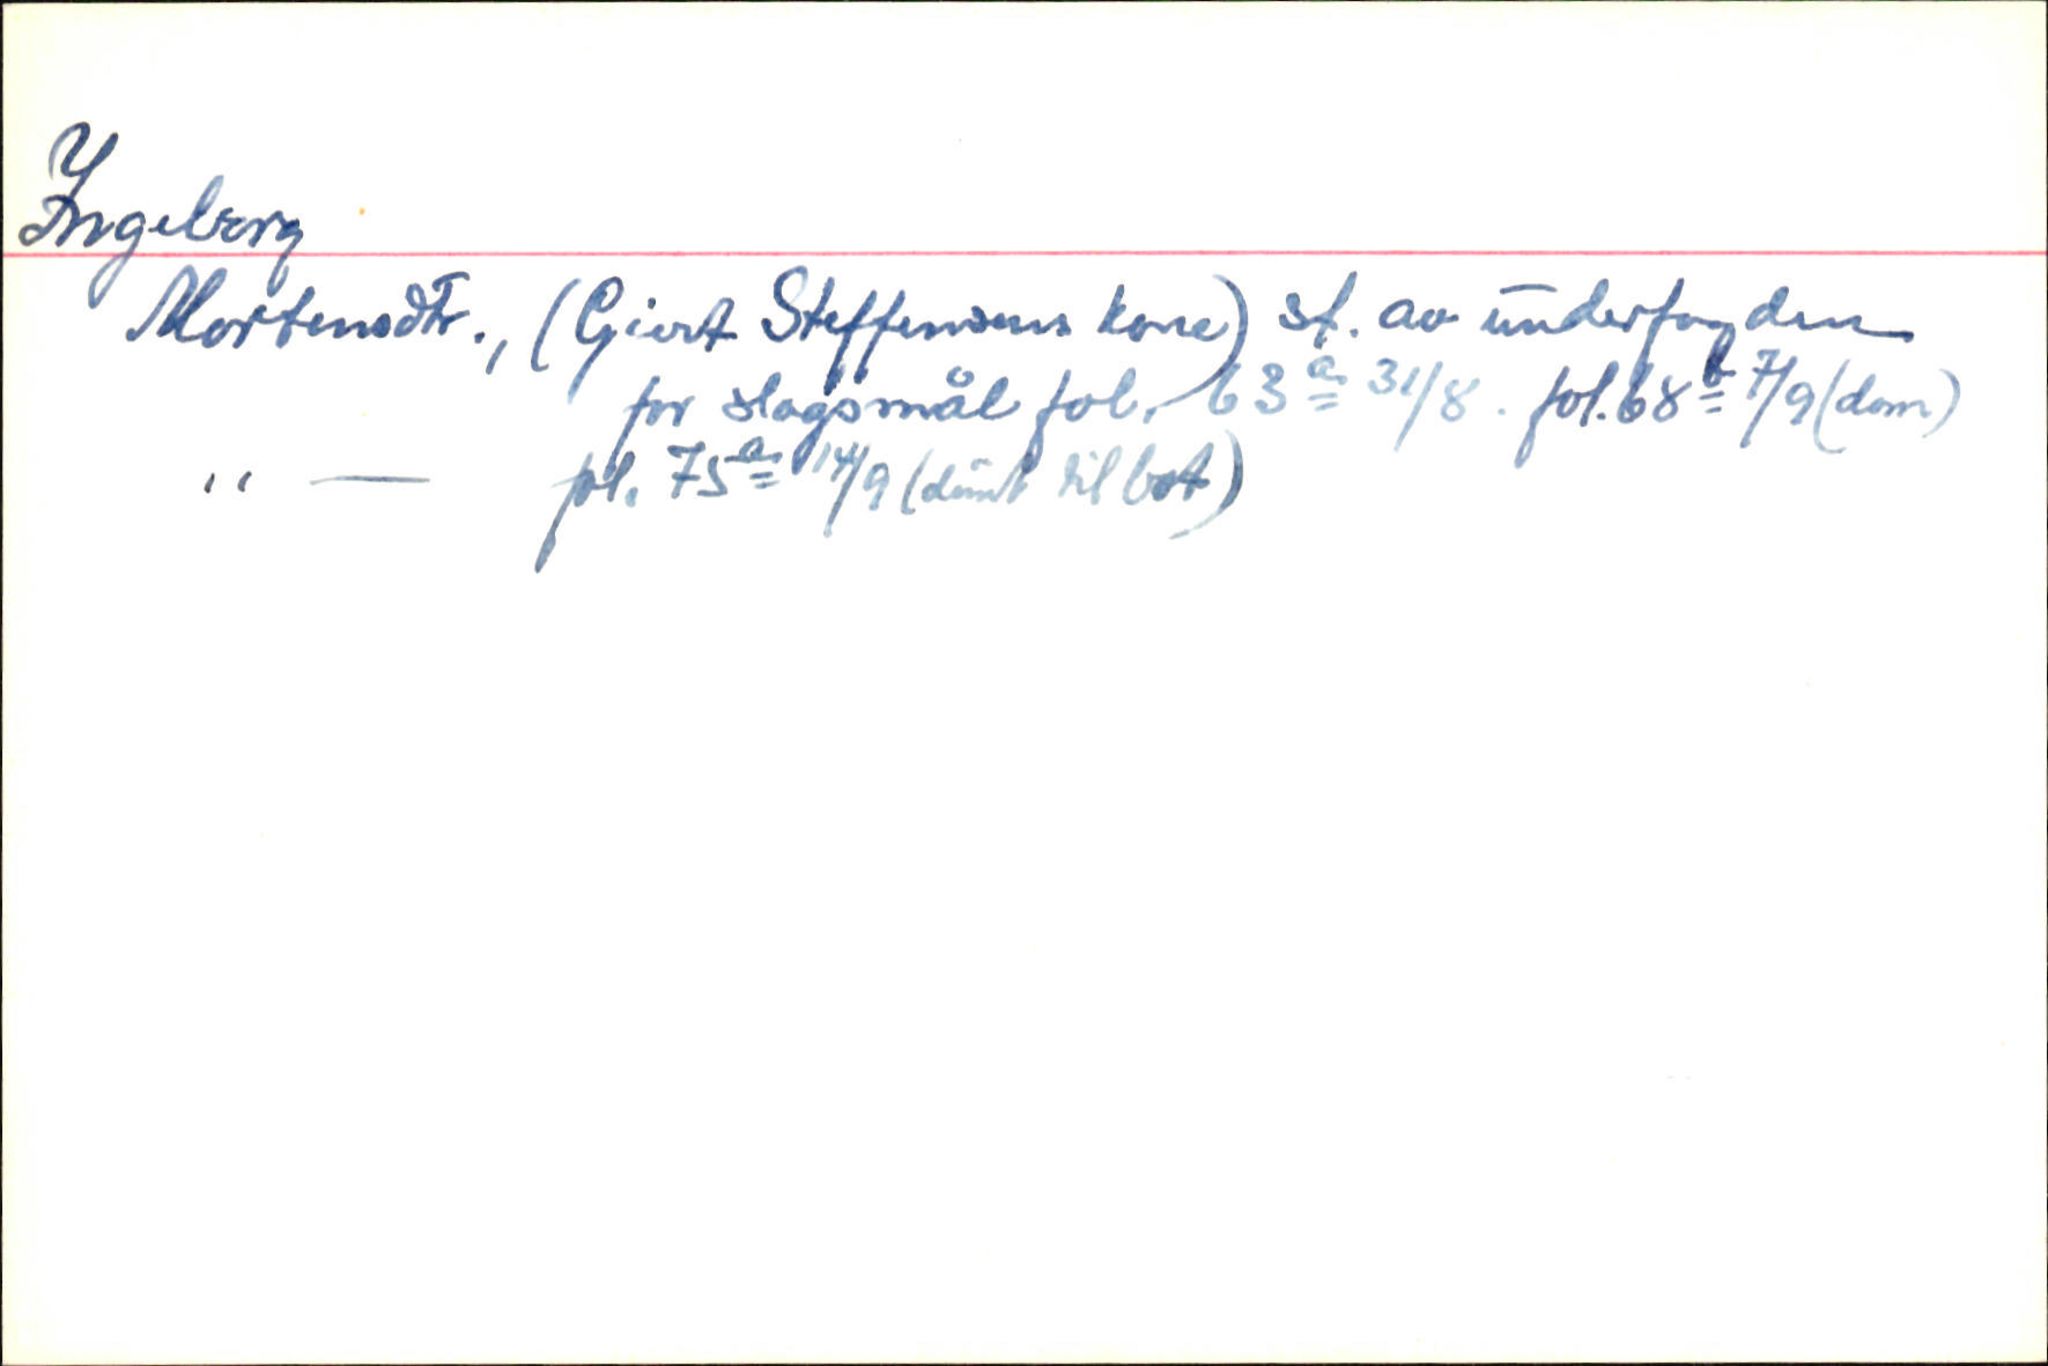 Y
Ingeborg
Mortensdtr., (Giert Steffensens kone) st. av underfogden
for slagsmål fol. 63a 31/8. fol. 68b 7/9 (dom)
,, — fol. 75a 14/9 (dömt til bot)